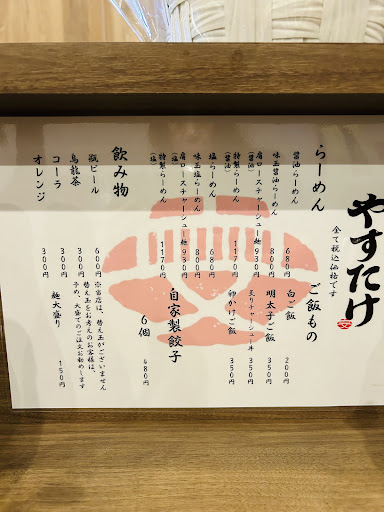 やすたけ
全て税込価格です
らーめん
醤油らーめん 680円
味玉醤油らーめん 800円
肩ロースチャーシュー麺(醤油) 930円
特製らーめん(醤油) 1170円
塩らーめん 680円
味玉塩らーめん 800円
肩ロースチャーシュー麺(塩) 930円
特製らーめん(塩) 1170円
飲み物
瓶ビール 600円
烏龍茶 300円
コーラ 300円
オレンジ 300円
ご飯もの
白ご飯 200円
明太子ご飯 350円
炙りチャーシュー丼 350円
卵かけご飯 350円
自家製餃子
6個 480円
※当店は、替え玉がございません
替え玉をお考えのお客様は、
予め、大盛でのご注文お勧めします
麺大盛り 150円